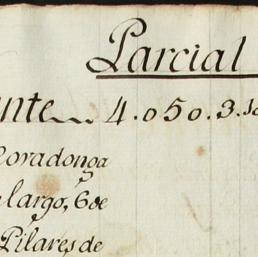 Parcial
ante... 4.050.3.
Coradonga
largo, 6 de
Pilares de